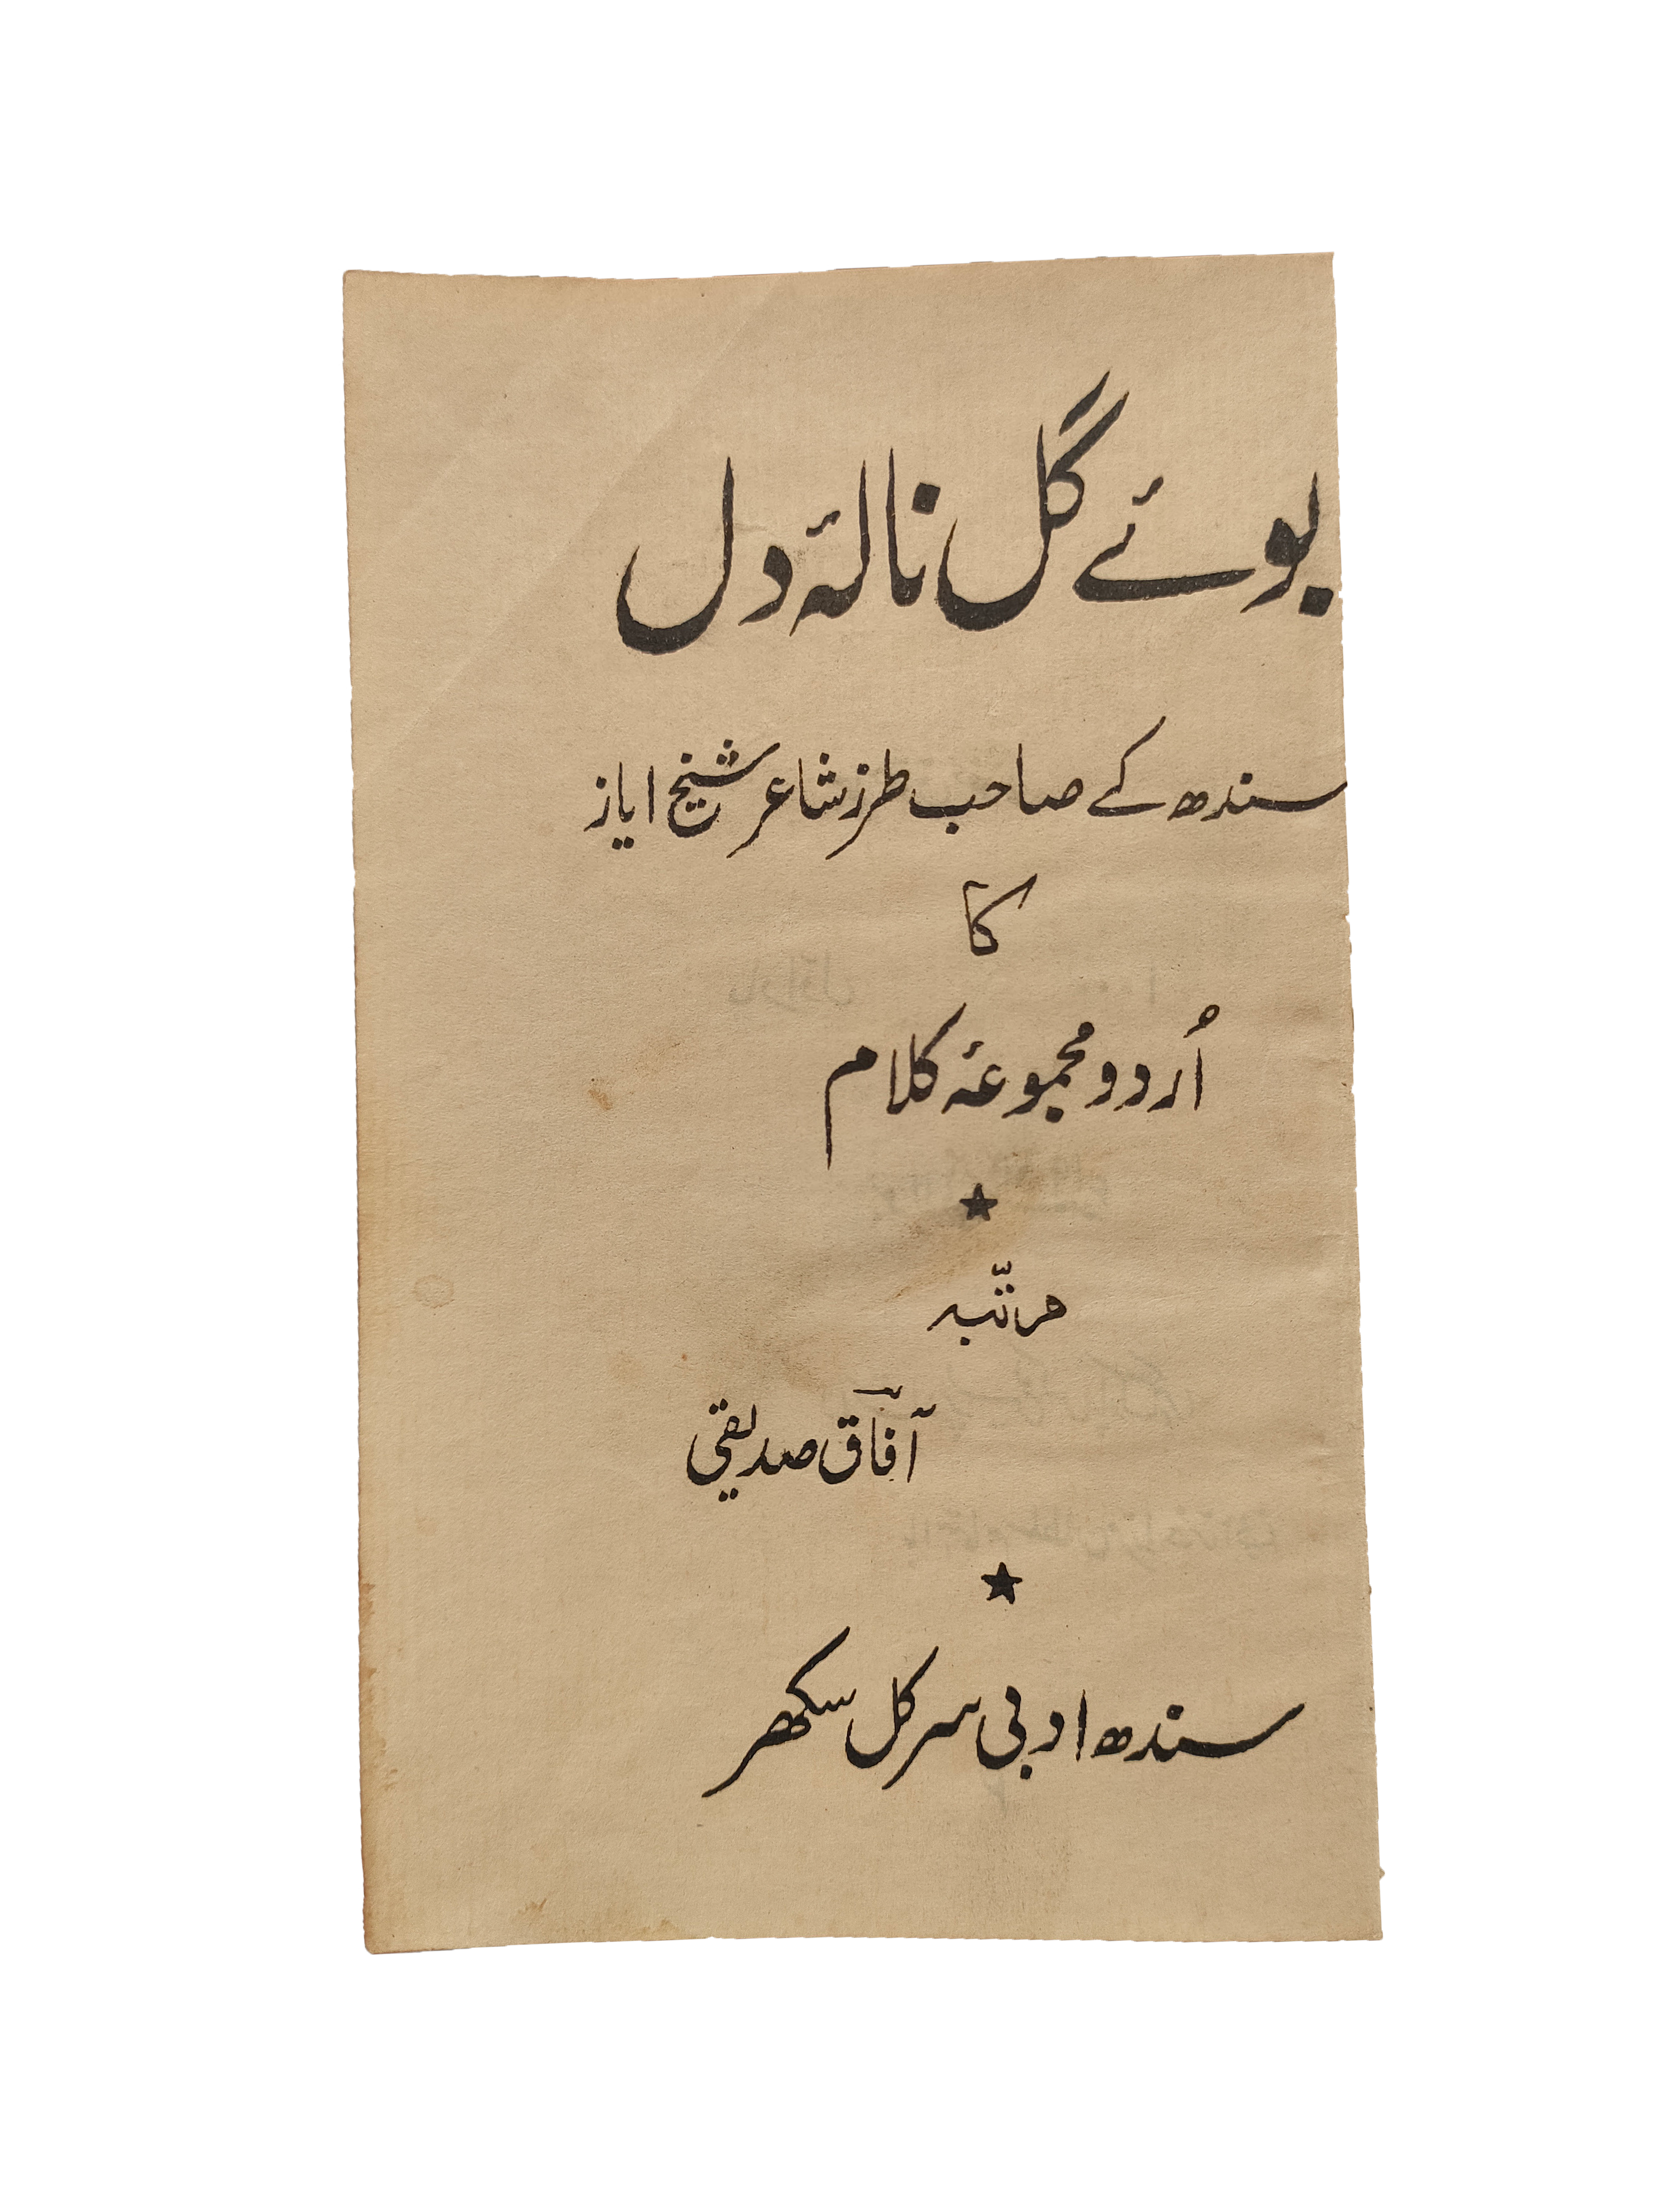 بوئے گل نالۂ دل
سندھ کے صاحب طرز شاعر شیخ ایاز
کا
اُردو مجموعۂ کلام
مرتّبہ
آفاق صدیقی
سندھ ادبی سرکل سکھر